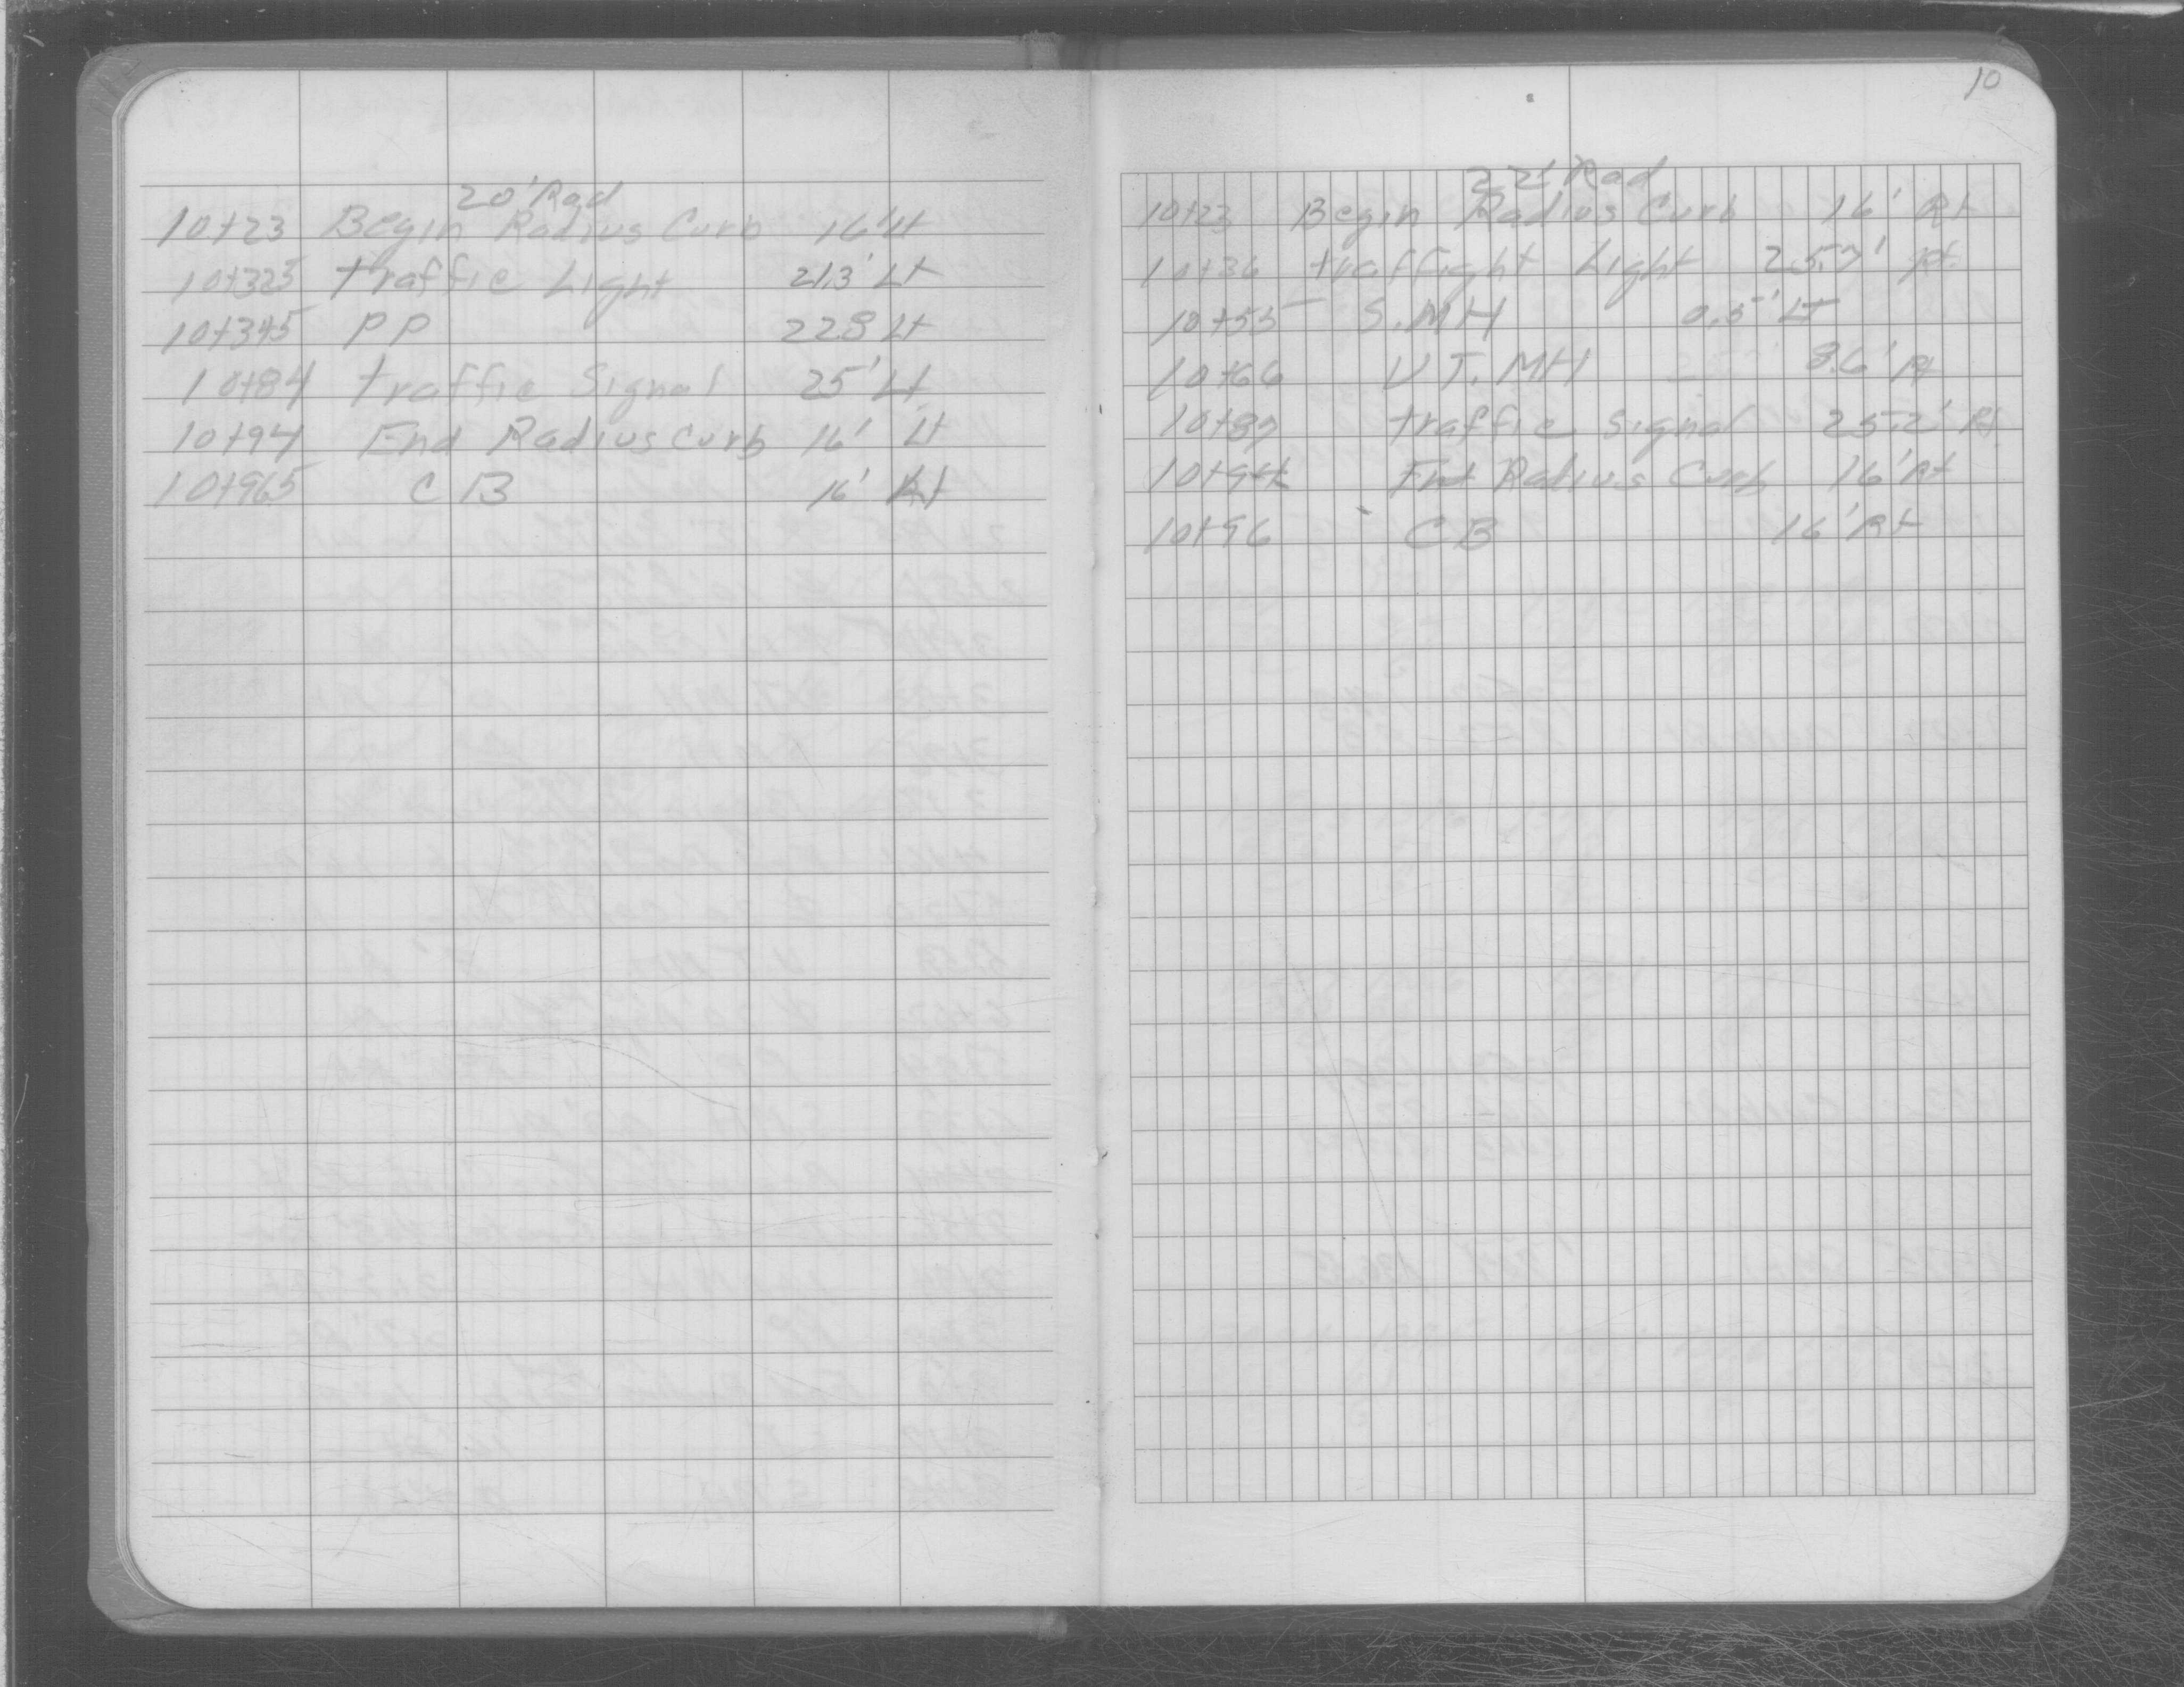 20' Rad
10+23 Begin Radius Curb 16' Lt
10+325 traffic Light 21.3' Lt
10+345 PP 22.8 Lt
10+84 traffic Signal 25' Lt
10+94 End Radius Curb 16' Lt
10+965 CB 16' Lt
10
22' Rad
10+23 Begin Radius Curb 16' Rt
10+36 traffight Light 25.7' Rt.
10+55 S.MH 0.5' LT
10+66 UT.MH 8.6' Rt
10+87 traffic signal 25.2' Rt.
10+94 End Radius Curb 16' Rt
10+96 CB 16' Rt